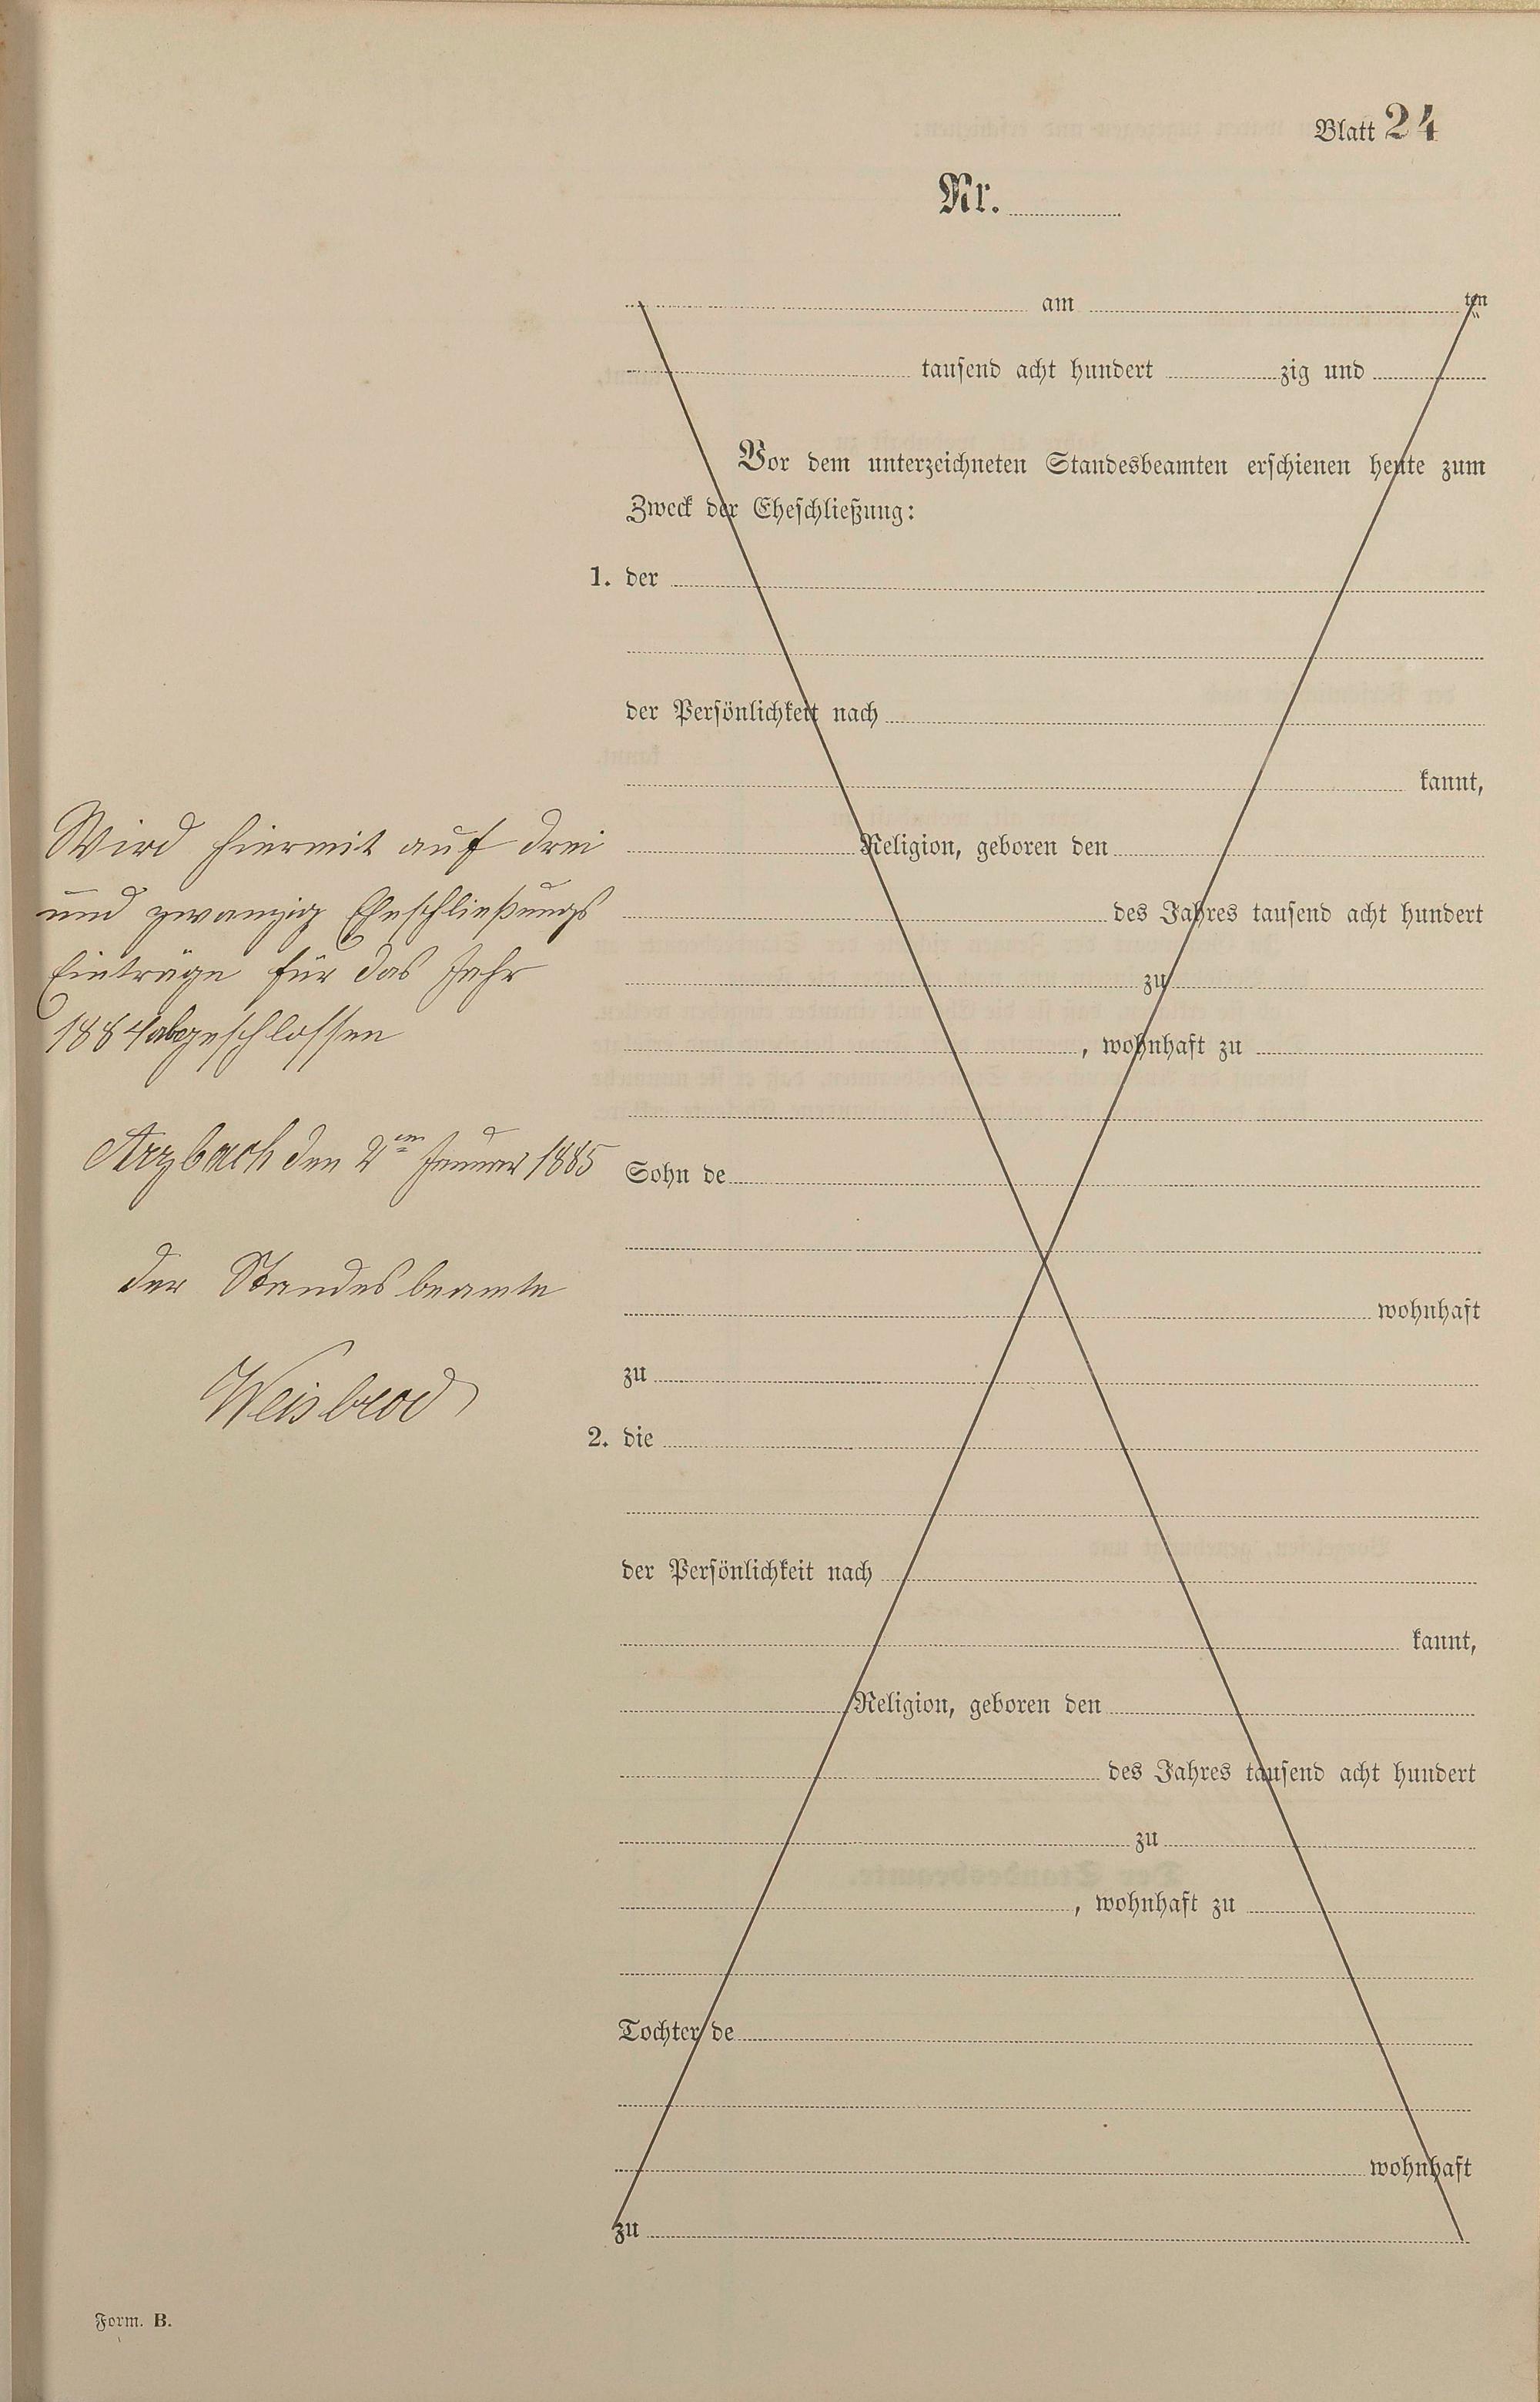 Blatt 24
Nr.
am ten
tausend acht hundert zig und
Vor dem unterzeichneten Standesbeamten erschienen heute zum
Zweck der Eheschließung:
1. der
der Persönlichkeit nach
kannt,
Religion, geboren den
des Jahres tausend acht hundert
zu
, wohnhaft zu
Sohn de
wohnhaft
zu
2. die
der Persönlichkeit nach
kannt,
Religion, geboren den
des Jahres tausend acht hundert
zu
, wohnhaft zu
Tochter de
wohnhaft
zu
Wird hiermit auf drei
und zwanzig Eheschließungs
Einträge für das Jahr
1884 abgeschlossen
Arzbach den 2ten Januar 1885
Der Standesbeamte
Weisbrod
Form. B.